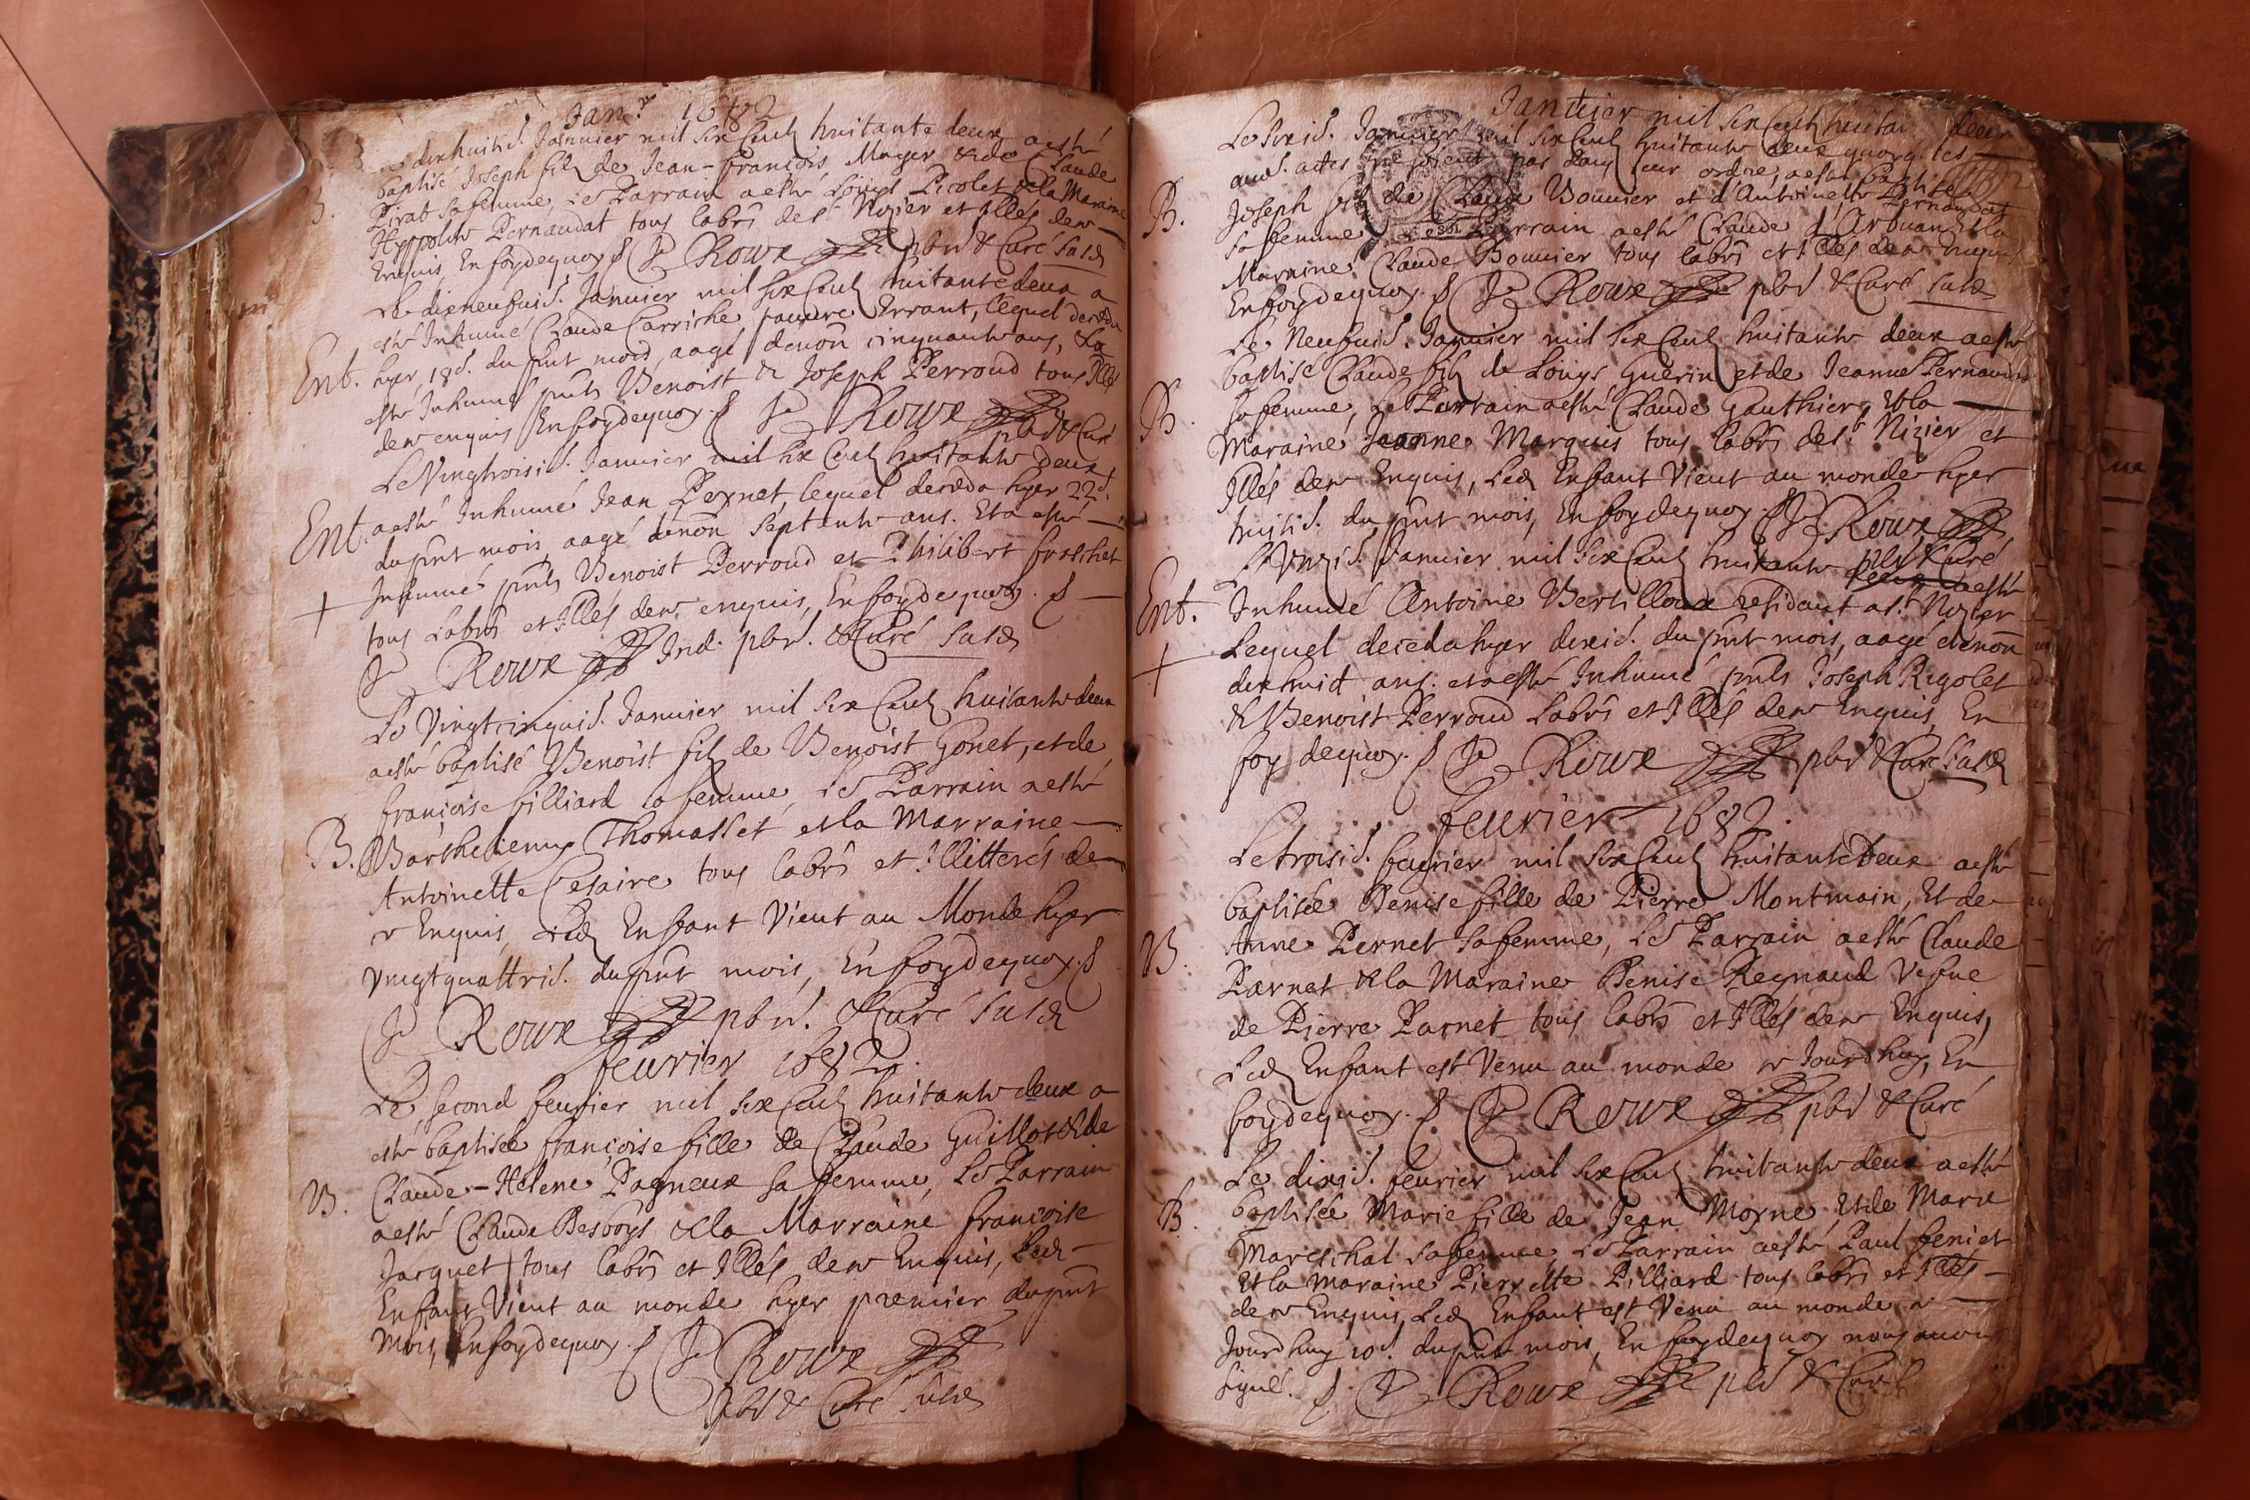 Jan.r 1682
Le dixhuitiè. Januier mil six Cent huitante deux a esté
B. baptisé Joseph filz de Jean-françois Moyer & de Claude
Pirat sa femme, Le Parrain a esté Loüys Picolet & la Maraine
Hyppolite Pernaudat tous labrs de St Nizier et Illés de ce
Enquis, En foy de quoy. Rowx pbre & Curé susd
Le dixneufuiè. Januier mil six Cent huitante deux a
esté Inhumé Claude Carriche pauure Errant, lequel deceda
Ent. hyer 18è. du pñt mois, aagé denõn cinquante ans, & a
esté Inhumé pñts Benoist & Joseph Perroud tous Illés
de ce enquis En foy de quoy. Rowx pbre & Curé
Le Vingtroisiè. Januier mil six Cent huitante deux
Ent. a esté Inhumé Jean Pernet, lequel deceda hyer 22è.
du pñt mois aagé denõn septante ans. Et a esté
Inhumé pñts Benoist Perroud et Philibert fraschet
tous Labrs et Illés de ce enquis, En foy de quoy.
Rowx Ind. pbre. & Curé susd
Le Vingtcinquiè. Januier mil six Cent huitante deux
a esté baptisé Benoist filz de Benoist Gonet, et de
françoise filliard sa femme, Le Parrain a esté
B. Barthelemy Thomasset et la Marraine
Antoinette Cesaire tous labrs et Illitterés de
ce Enquis, Led Enfant Vient au Monde hyer
Vingtquattriè. du pñt mois, En foy de quoy.
Rowx pbre. & Curé susd
feurier 1682
Le second feurier mil six Cent huitante deux a
esté baptisée françoise fille de Claude Guillot & de
B. Claude-Helene Pagneux sa femme, Le Parrain
a esté Claude Desboys & la Marraine françoise
Jacquet tous labrs et Illés de ce Enquis, Led
Enfant Vient au monde hyer premier du pñt
Mois, En foy de quoy. Rowx
pbre & Curé susd
Januier mil six Cent huitante deux
Le Januier mil six Cent huitante deux quoyq. les
aud. actes ne soient pas dans leur ordre, a esté baptisé
B. Joseph filz de Claude Bouuier et d'Antoinette Pernaudat
sa femme, Le Parrain a esté Claude & la
Maraine Claude Bouuier tous labrs et Illés de ce enquis
En foy de quoy. Rowx pbre & Curé susd
Le Neufuiè. Januier mil six Cent huitante deux a esté
baptisé Claude filz de Loüys Guerin et de Jeanne Pernaudat
B. sa femme, Le Parrain a esté Claude Gauthier, & la
Maraine Jeanne Marquis tous labrs de St Nizier et
Illés de ce Enquis, Led Enfant Vient au monde hyer
huitiè. du pñt mois, En foy de quoy. Rowx
pbre & Curé
L'Vnziè. Januier mil six Cent huitante deux a esté
Ent. Inhumé Antoine Bertilloux residant a St Nizier
Lequel deceda hyer dixiè. du pñt mois, aagé denõn
dixhuit ans. et a esté Inhumé pñts Joseph Rigolet
& Benoist Perroud Labrs et Illés de ce Enquis, En
foy de quoy. Rowx pbre & Curé susd
feurier 1682.
Le troisiè. feurier mil six Cent huitante Deux a esté
baptisée Denise fille de Pierre Montmain, Et de
B. Anne Pernet sa femme, Le Parrain a esté Claude
Parnet & la Maraine Denise Regnaud Vefue
de Pierre Parnet tous labrs et Illés de ce Enquis,
Led Enfant est Venu au monde ce Jourdhuy, En
foy de quoy. Rowx pbre & Curé
Le dixiè. feurier mil six Cent huitante deux a esté
B. baptisée Marie fille de Jean Moyne, et de Marie
Mareschal sa femme, Le Parrain a esté Paul feniet
Et la Maraine Pierrette Pilliard tous labrs et Illés
de ce Enquis, Led Enfant est Venu au monde ce
Jourdhuy 10è. du pñt mois, En foy de quoy nous auons
signé. Rowx pbre & Curé